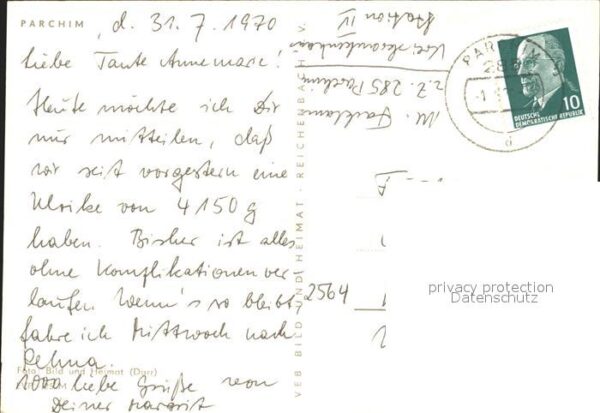 PARCHIM
, d. 31.7.1970
Liebe Tante Annemarie!
Heute möchte ich Dir
nur mitteilen, daß
wir seit vorgestern eine
Ulrike von 4150 g
haben. Bisher ist alles
ohne Komplikationen ver
laufen. Wenn's so bleibt,
fahre ich Mittwoch nach
Rehna.
1000 liebe Grüße von
Deiner Margrit
Foto: Bild und Heimat (Darr)
VEB BILD UND HEIMAT · REICHENBACH V.
M.
z.Z. 285 Parchim
Krs. Krankenhaus
Station IV
2564
PAR
285
10
DEUTSCHE
DEMOKRATISCHE REPUBLIK
d
privacy protection
Datenschutz